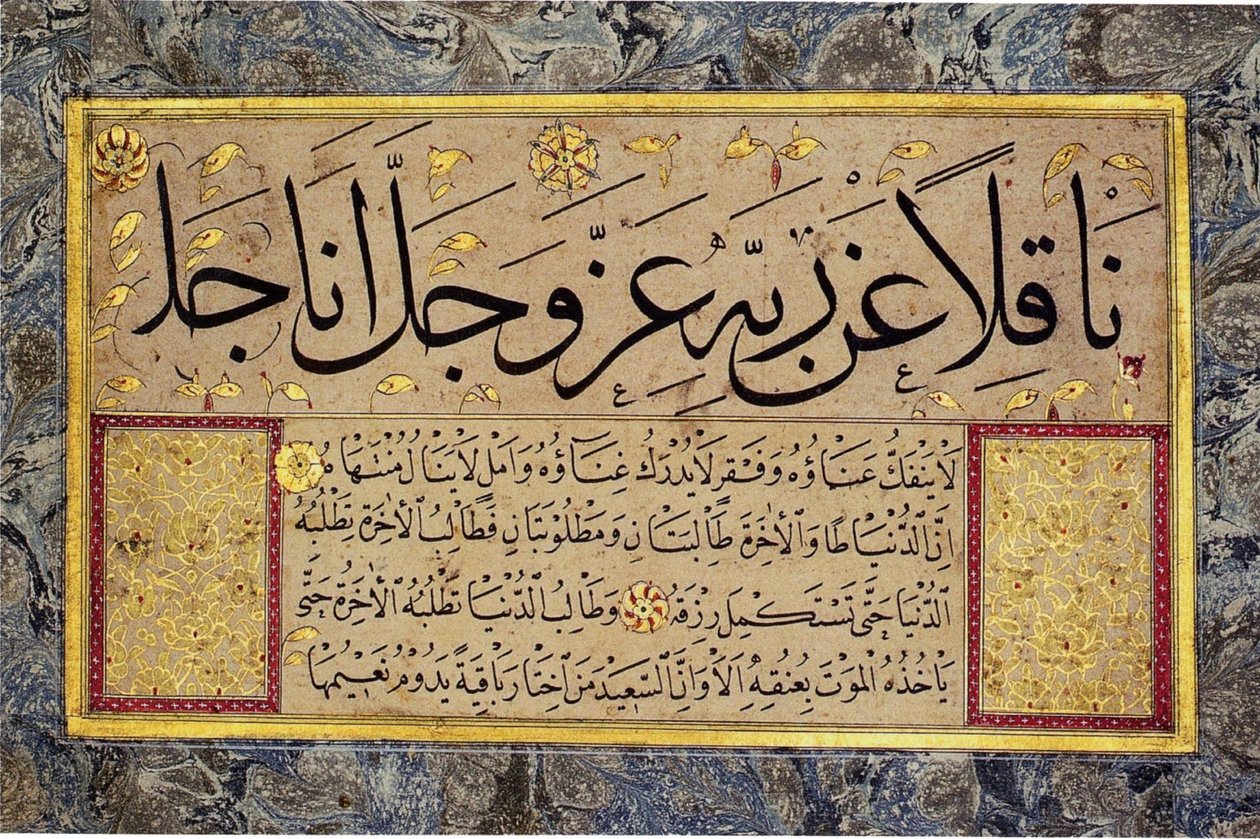 نَا قِلاً عَنْ رَبِّهِ عَزَّ وَجَلَّ اَنَا جَل
لَا يَنْفَكُّ عَنَاؤُهُ وَفَقْرٍ لَا يُدْرَكُ غِنَاؤُهُ وَاَمَلٍ لَا يَنَالُ مُنْتَهَاهُ
اِنَّ الدُّنْيَا وَالْاٰخِرَةَ طَالِبَتَانِ وَمَطْلُوبَتَانِ فَطَالِبُ الْاٰخِرَةِ تَطْلُبُهُ
الدُّنْيَا حَتّٰى تَسْتَكْمِلَ رِزْقَهُ وَطَالِبُ الدُّنْيَا تَطْلُبُهُ الْاٰخِرَةُ حَتّٰى
يَأْخُذُهُ الْمَوْتُ بِعُنُقِهِ اَلَا وَاِنَّ السَّعِيدَ مَنْ اِخْتَارَ بَاقِيَةً يَدُومُ نَعِيمُهَا